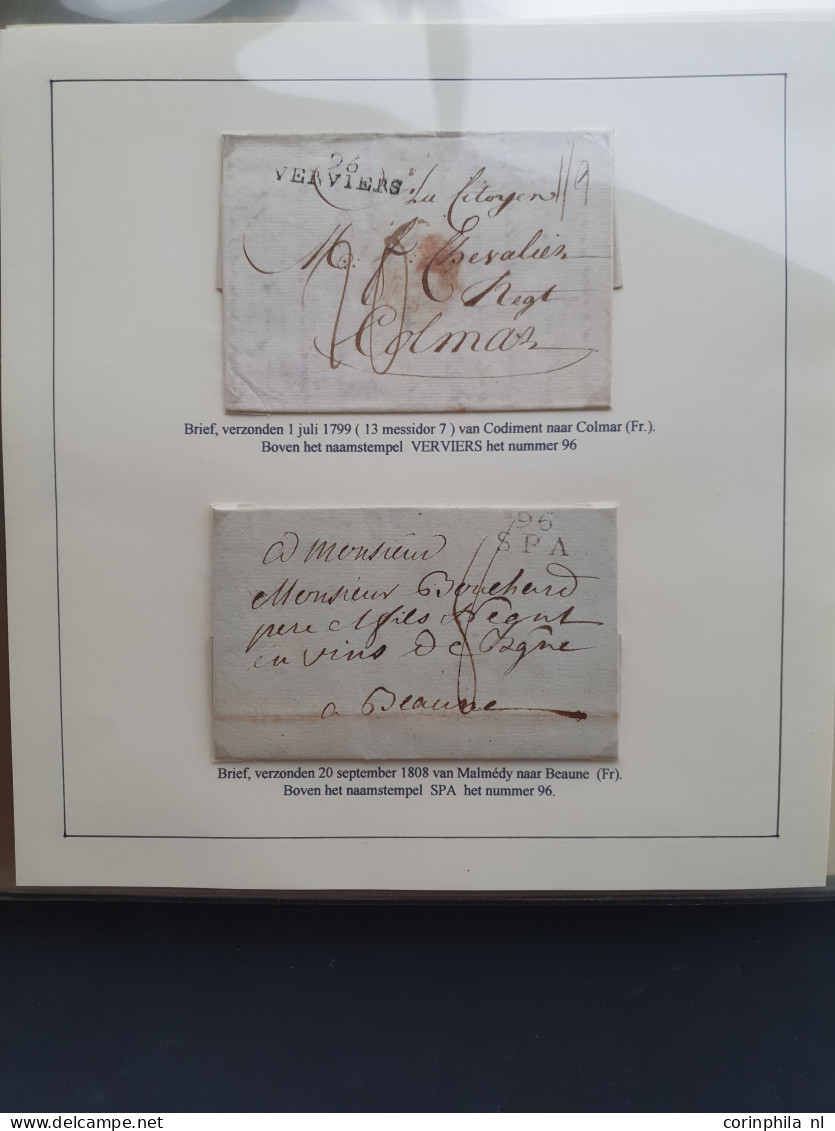 96
VERVIERS
Au Citoyen
Chevalier
Negt
Colmar
Brief, verzonden 1 juli 1799 ( 13 messidor 7 ) van Codiment naar Colmar (Fr.).
Boven het naamstempel VERVIERS het nummer 96
96
SPA
a Monsieur
Monsieur Bouchard
pere & fils Negnt
en vins de Bgne
a Beaune
Brief, verzonden 20 september 1808 van Malmédy naar Beaune (Fr).
Boven het naamstempel SPA het nummer 96.
corinphila nl